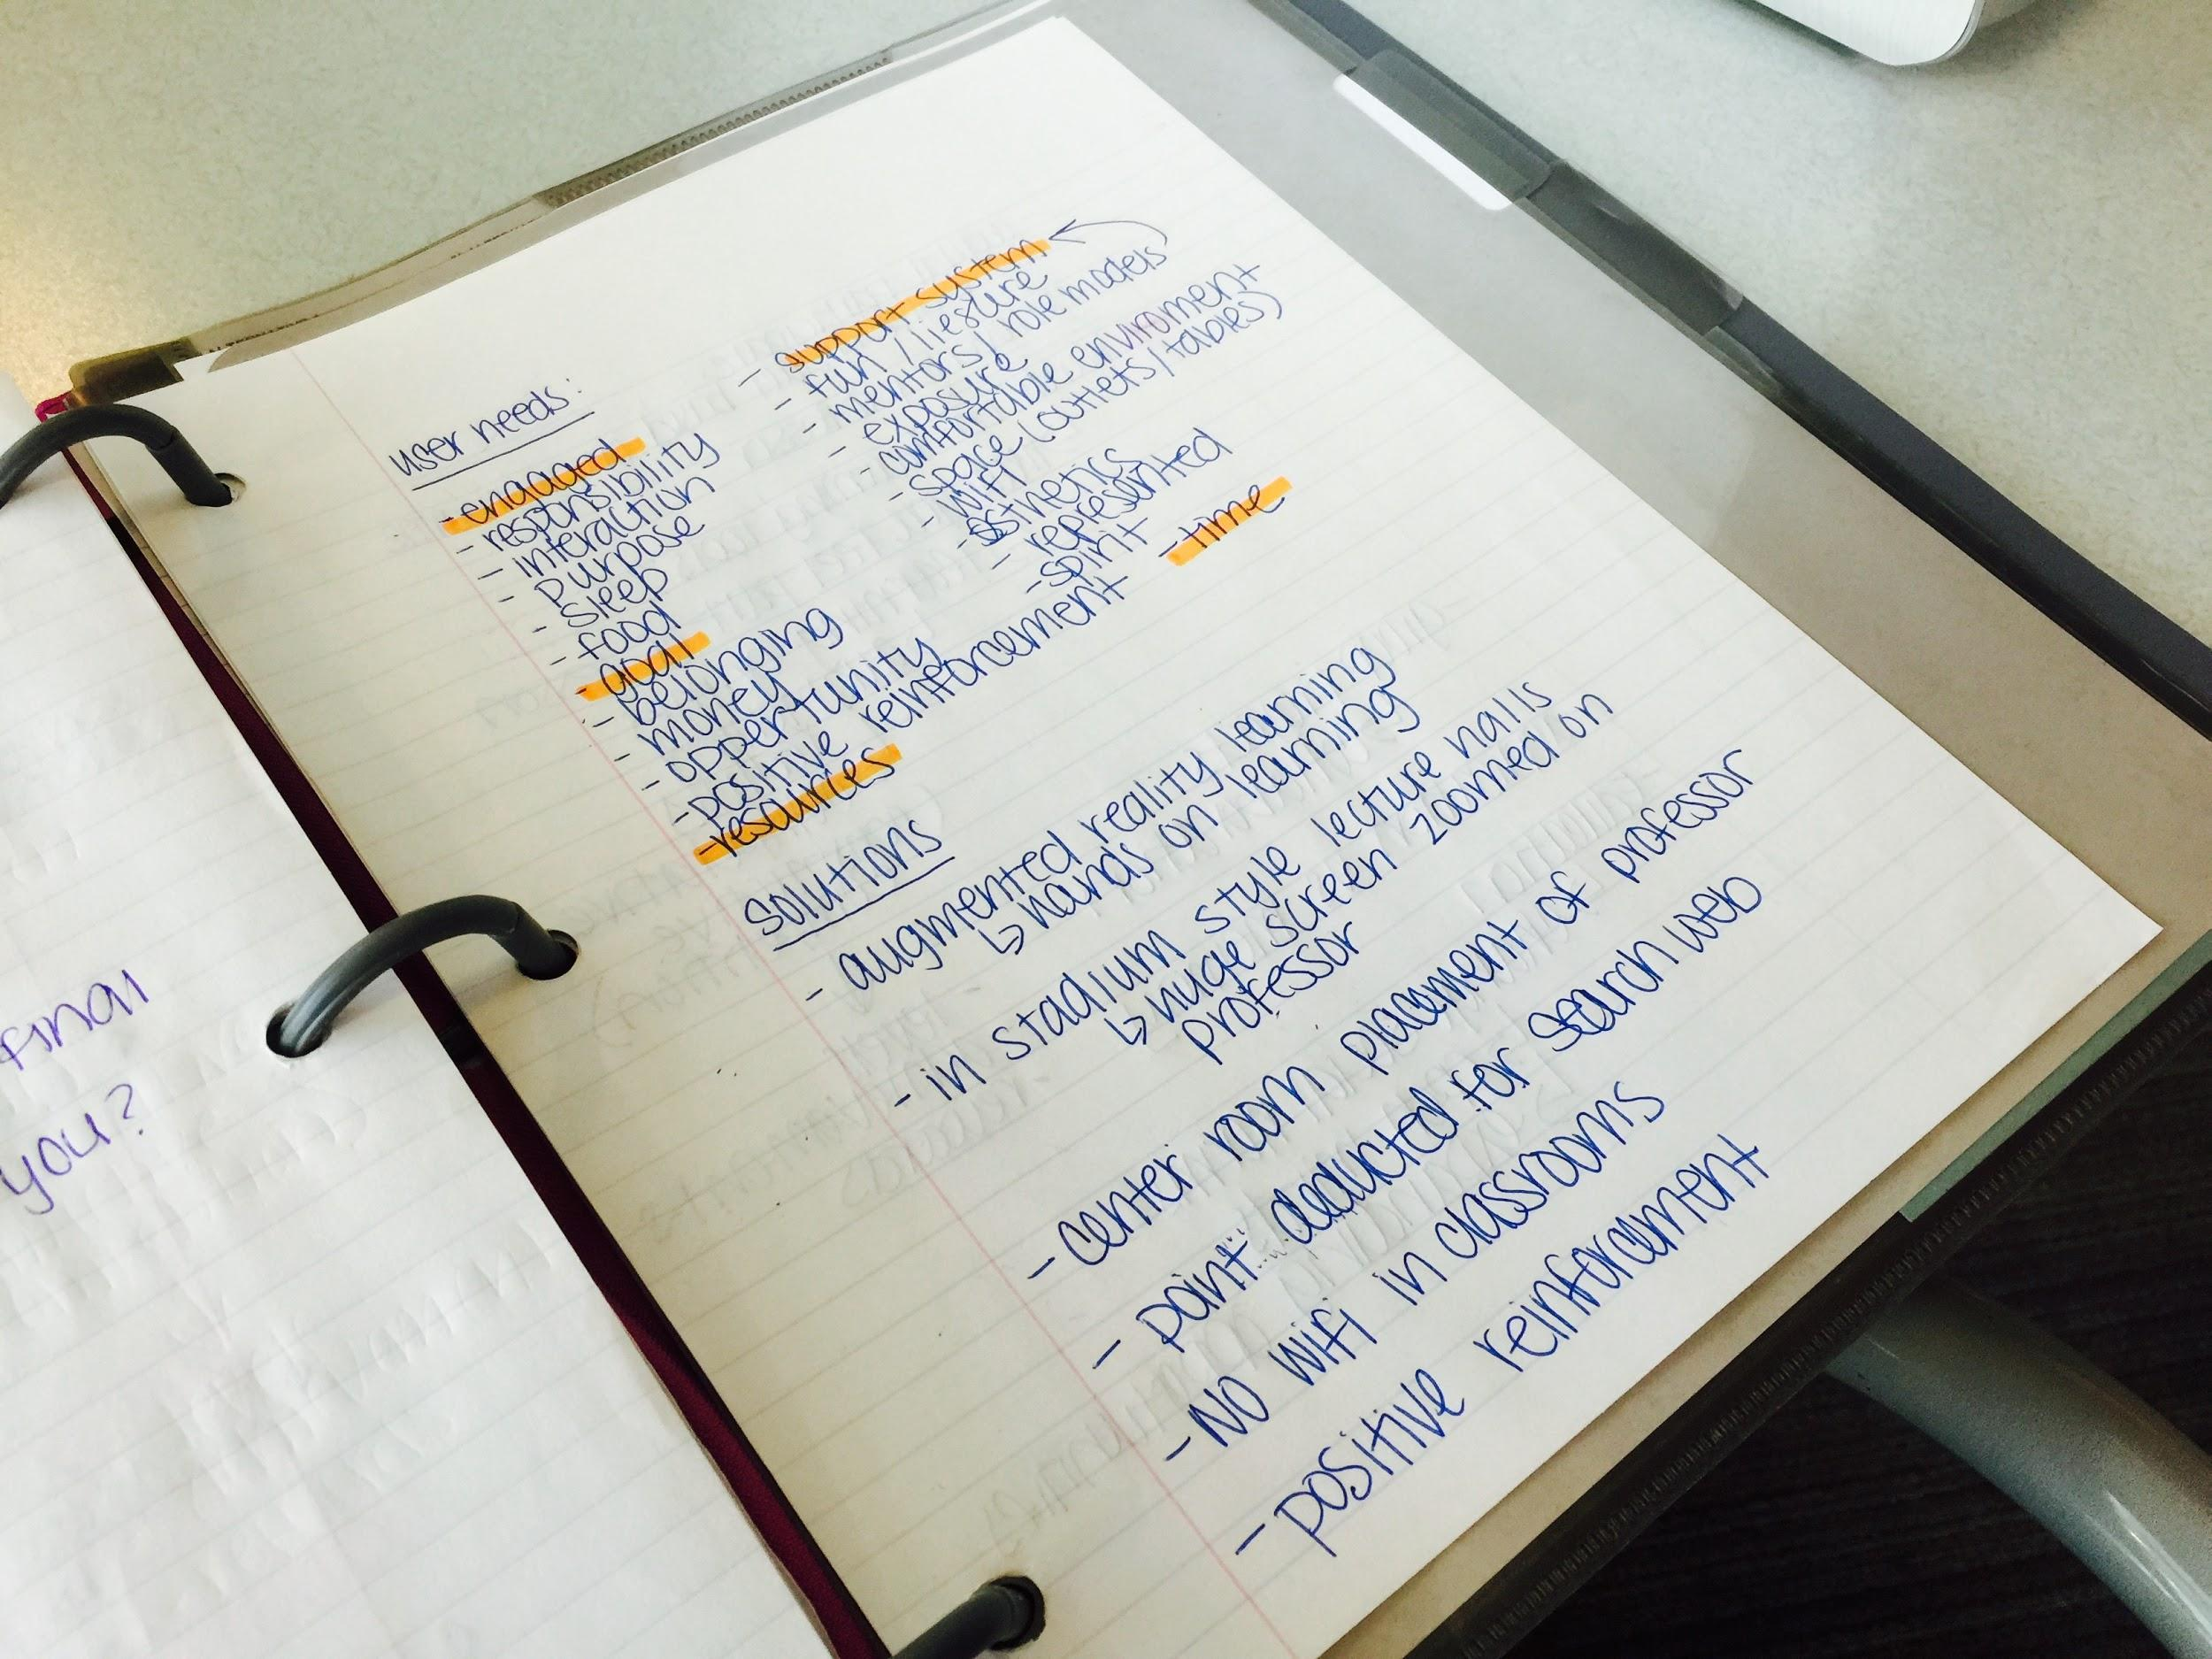 user needs:
- engaged
- responsibility
- interaction
- purpose
- sleep
- food
- goal
- belonging
- money
- oppertunity
- positive reinforcement
- resources
- support system
- fun / liesure
- mentors / role models
- exposure
- comfortable enviroment
- space (outlets / tables)
- wifi
- asthetics
- represented
- spirit
- time
solutions
- augmented reality learning
↳ hands on learning
- in stadium style lecture halls
↳ huge screen zoomed on
professor
- center room placement of professor
- point deducted for search web
- NO wifi in classrooms
- positive reinforcement
final
you?